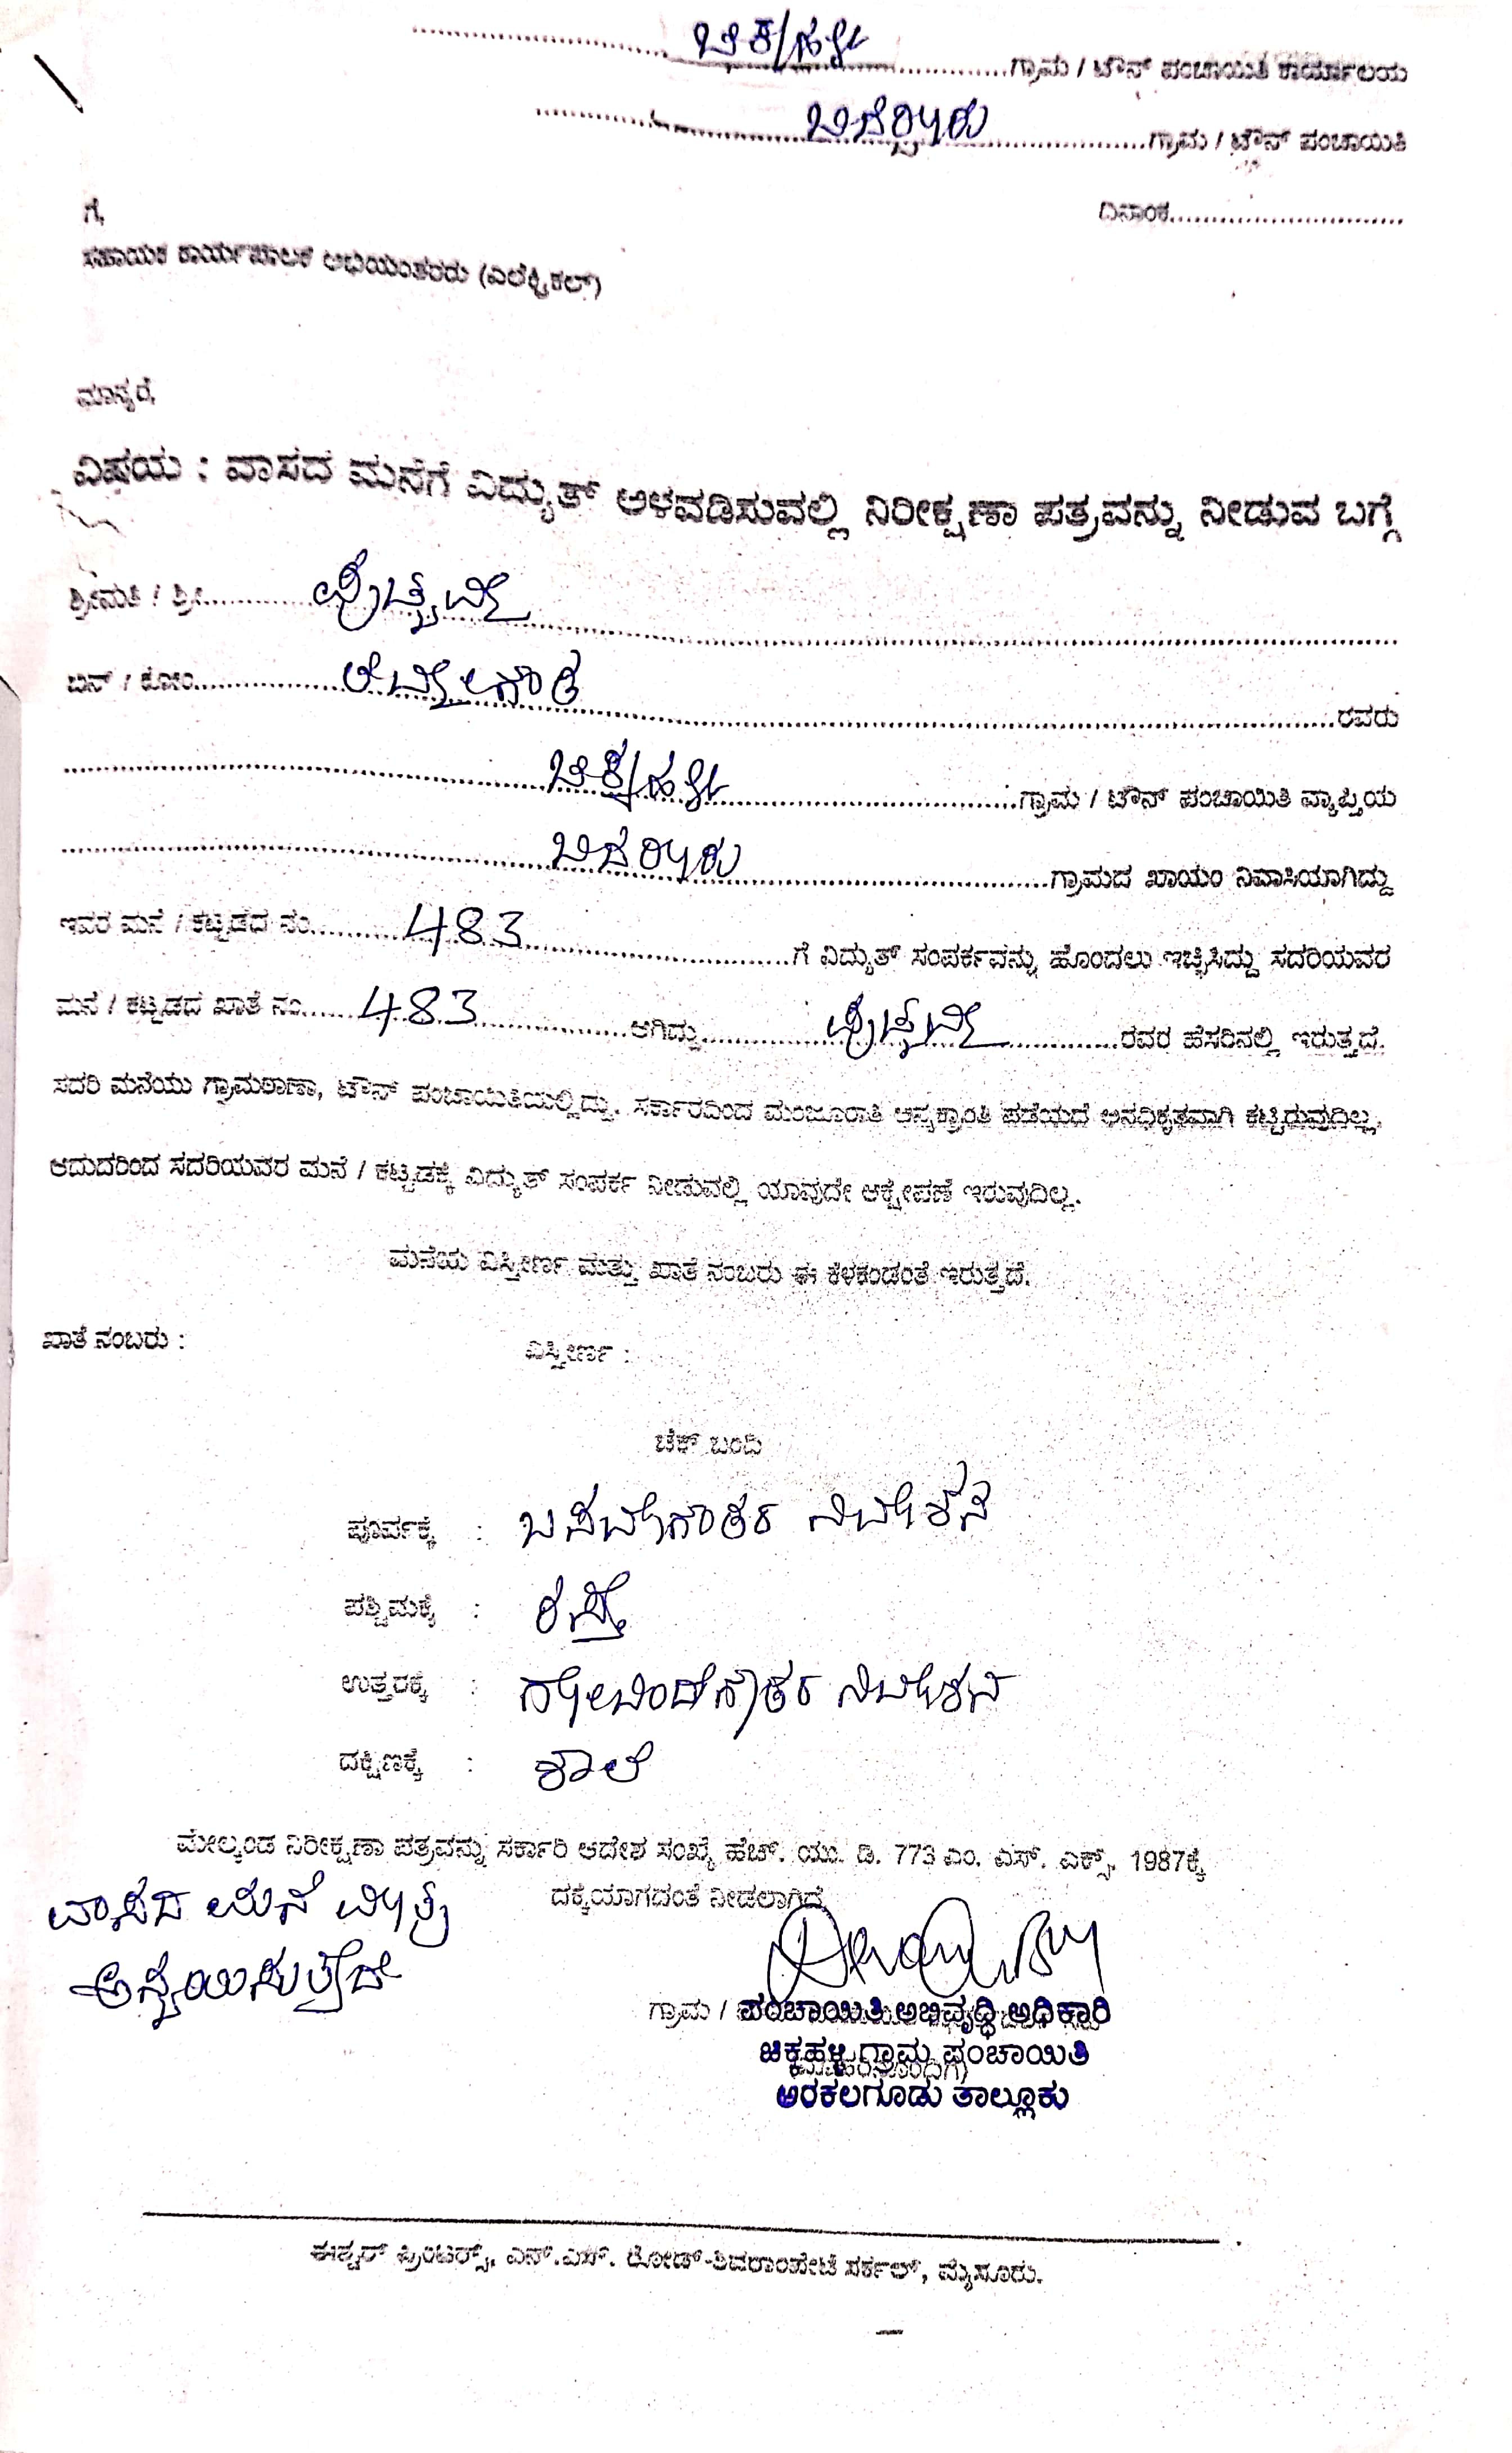 ಚಿಕ್ಕಹಳ್ಳಿ ಗ್ರಾಮ / ಟೌನ್ ಪಂಚಾಯಿತಿ ಕಾರ್ಯಾಲಯ
ಗ್ರಾಮ / ಟೌನ್ ಪಂಚಾಯಿತಿ
ದಿನಾಂಕ
ಗೆ,
ಸಹಾಯಕ ಕಾರ್ಯಪಾಲಕ ಅಭಿಯಂತರರು (ಎಲೆಕ್ಟ್ರಿಕಲ್)
ಮಾನ್ಯರೆ,
ವಿಷಯ : ವಾಸದ ಮನೆಗೆ ವಿದ್ಯುತ್ ಅಳವಡಿಸುವಲ್ಲಿ ನಿರೀಕ್ಷಣಾ ಪತ್ರವನ್ನು ನೀಡುವ ಬಗ್ಗೆ
ಶ್ರೀಮತಿ / ಶ್ರೀ
ಬಿನ್ / ಕೋಂ ರವರು
ಚಿಕ್ಕಹಳ್ಳಿ ಗ್ರಾಮ / ಟೌನ್ ಪಂಚಾಯಿತಿ ವ್ಯಾಪ್ತಿಯ
ಗ್ರಾಮದ ಖಾಯಂ ನಿವಾಸಿಯಾಗಿದ್ದು
ಇವರ ಮನೆ / ಕಟ್ಟಡದ ನಂ. 483 ಗೆ ವಿದ್ಯುತ್ ಸಂಪರ್ಕವನ್ನು ಹೊಂದಲು ಇಚ್ಛಿಸಿದ್ದು ಸದರಿಯವರ
ಮನೆ / ಕಟ್ಟಡದ ಖಾತೆ ನಂ. 483 ಆಗಿದ್ದು ರವರ ಹೆಸರಿನಲ್ಲಿ ಇರುತ್ತದೆ.
ಸದರಿ ಮನೆಯು ಗ್ರಾಮಠಾಣಾ, ಟೌನ್ ಪಂಚಾಯಿತಿಯಲ್ಲಿದ್ದು, ಸರ್ಕಾರದಿಂದ ಮಂಜೂರಾತಿ ಅನ್ಯಕ್ರಾಂತಿ ಪಡೆಯದೆ ಅನಧಿಕೃತವಾಗಿ ಕಟ್ಟಿರುವುದಿಲ್ಲ.
ಆದುದರಿಂದ ಸದರಿಯವರ ಮನೆ / ಕಟ್ಟಡಕ್ಕೆ ವಿದ್ಯುತ್ ಸಂಪರ್ಕ ನೀಡುವಲ್ಲಿ ಯಾವುದೇ ಆಕ್ಷೇಪಣೆ ಇರುವುದಿಲ್ಲ.
ಮನೆಯ ವಿಸ್ತೀರ್ಣ ಮತ್ತು ಖಾತೆ ನಂಬರು ಈ ಕೆಳಕಂಡಂತೆ ಇರುತ್ತದೆ.
ಖಾತೆ ನಂಬರು : ವಿಸ್ತೀರ್ಣ :
ಚೆಕ್ ಬಂದಿ
ಪೂರ್ವಕ್ಕೆ : ಬಸವೇಗೌಡರ ನಿವೇಶನ
ಪಶ್ಚಿಮಕ್ಕೆ : ರಸ್ತೆ
ಉತ್ತರಕ್ಕೆ : ಗೋವಿಂದೇಗೌಡರ ನಿವೇಶನ
ದಕ್ಷಿಣಕ್ಕೆ : ಶಾಲೆ
ಮೇಲ್ಕಂಡ ನಿರೀಕ್ಷಣಾ ಪತ್ರವನ್ನು ಸರ್ಕಾರಿ ಆದೇಶ ಸಂಖ್ಯೆ ಹೆಚ್. ಯು. ಡಿ. 773 ಎಂ. ಎಸ್. ಎಕ್ಸ್. 1987ಕ್ಕೆ
ದಕ್ಕೆಯಾಗದಂತೆ ನೀಡಲಾಗಿದೆ
ವಾಸದ ಮನೆ ಮಾತ್ರ
ಅನ್ವಯಿಸುತ್ತದೆ
ಗ್ರಾಮ /
ಪಂಚಾಯಿತಿ ಅಭಿವೃದ್ಧಿ ಅಧಿಕಾರಿ
ಚಿಕ್ಕಹಳ್ಳಿ ಗ್ರಾಮ ಪಂಚಾಯಿತಿ
ಅರಕಲಗೂಡು ತಾಲ್ಲೂಕು
ಈಶ್ವರ್ ಪ್ರಿಂಟರ್ಸ್, ಎನ್.ಎಸ್. ರೋಡ್-ಶಿವರಾಂಪೇಟೆ ಸರ್ಕಲ್, ಮೈಸೂರು.